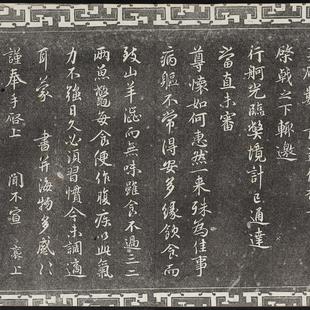 棨戟之下輒邀
行舸光臨弊境計已通達
當直未審
尊懷如何惠然一來殊為佳事
病軀不常得安多緣飲食而
致山羊澀而無味雖食不過三二
兩魚鱉每食便作腹疾以此氣
力不強日久必須習慣今未調適
耳蒙 書并海物多感〻
謹奉手啓上 聞不宣 襄上